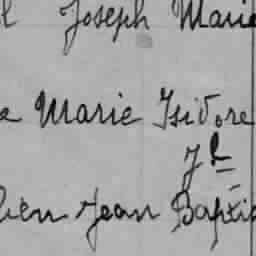 Joseph Marie
Marie Isidore
Jean Baptis